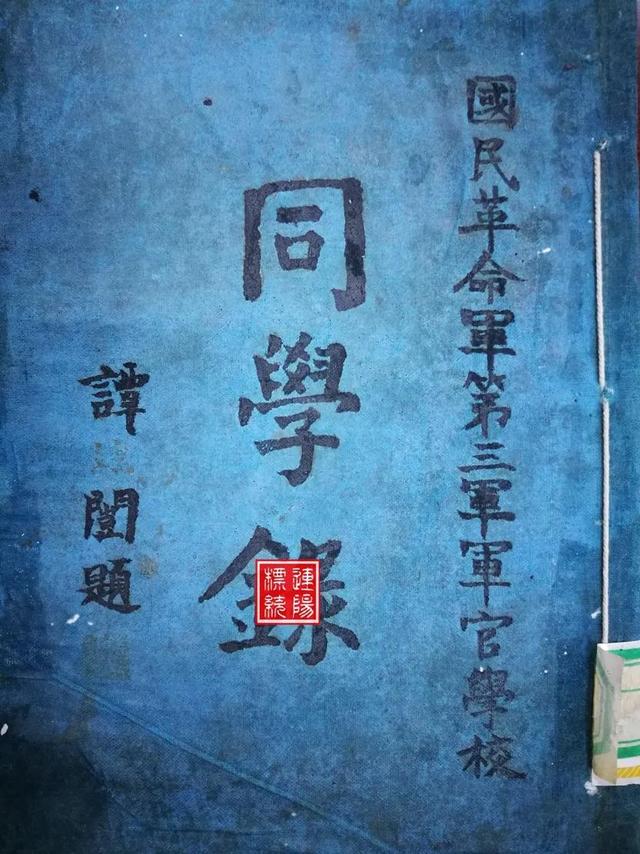 國民革命軍第三軍軍官學校
同學錄
譚闓題
連陽標統